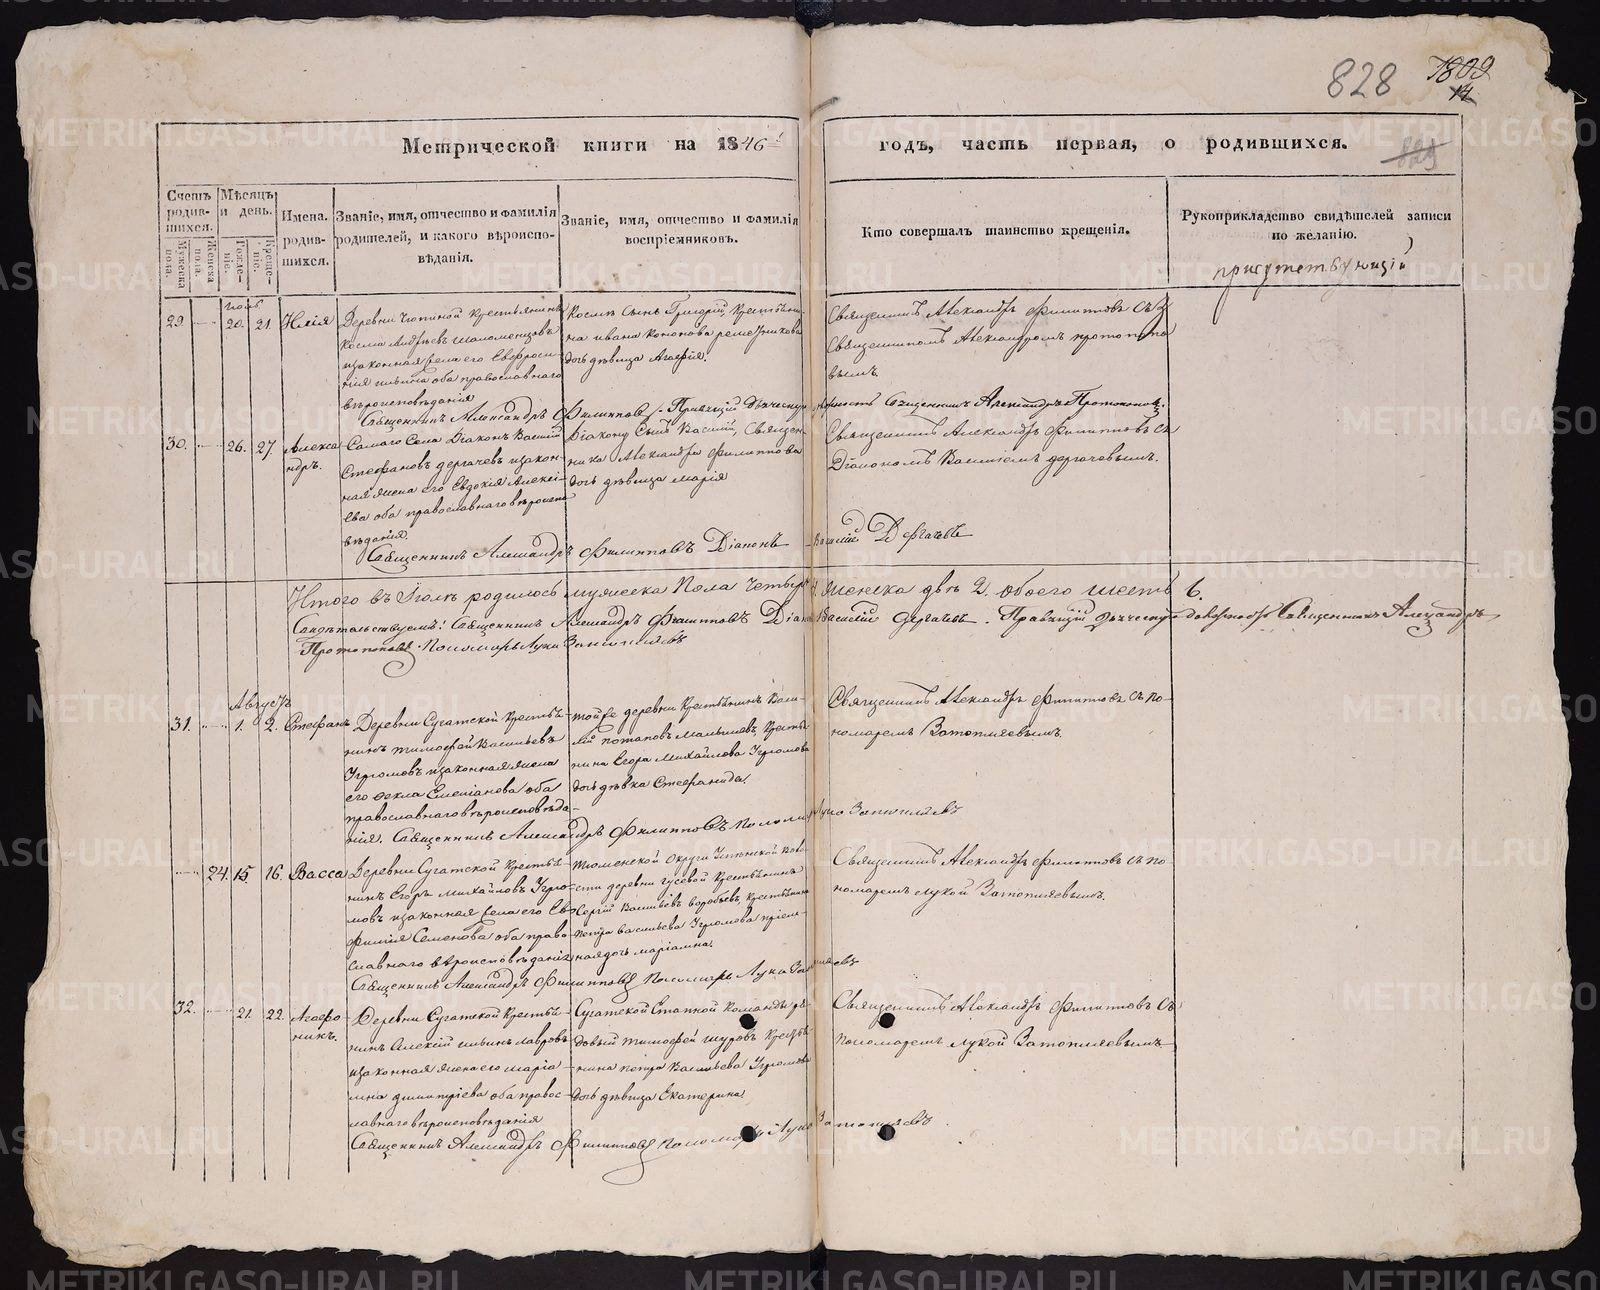 828
1809
14
829
Метрической книги на 1846й годъ, часть первая, о родившихся.
Счетъ родив-шихся.
Мужеска пола.
Женска пола.
Мѣсяцъ и день.
Рожде-нiе.
Креще-нiе.
Имена родив-шихся.
Званіе, имя, отчество и фамилія родителей, и какого вѣроиспо-вѣданія.
Званіе, имя, отчество и фамилія воспріемниковъ.
Кто совершалъ таинство крещенія.
Рукоприкладство свидѣтелей записи по желанію.
29
20. 21. Илія
Деревни Крестьянинъ
Косма Андреевъ
изаконная жена его Евфроси-
нія Ильина оба православнаго
вѣроисповѣданія
Космы сынъ Григорій, Крестьяни-
на Ивана Кононова
дочь дѣвица Агафія.
Священникъ Александръ Филиповъ съ
Священникомъ Александромъ Протопопо
вымъ.
Священникъ Александръ Филипповъ Правящій Дьяческую должность Священникъ Александръ Протопоповъ
30. 26. 27. Алекса
ндръ.
Самаго Села Діаконъ Василій
Стефановъ Дергачевъ изакон-
ная жена его Евдокія Алексі-
ева оба православнаго вѣроиспо
вѣданія.
Діакону Сынъ Василій, Священ-
ника Александра Филиппова
дочь дѣвица Марія
Священникъ Александръ Филипповъ съ
Діакономъ Василіемъ Дергачевымъ.
Священникъ Александръ Филипповъ Діаконъ Василій Дергачевъ
Итого въ Іюлѣ родилось мужеска Пола Четыре 4. женска двѣ 2. обоего шесть 6.
Свидѣтельствуемъ: Священникъ Александръ Филипповъ Діаконъ Василій Дергачевъ. Правящій Дьяческую должность Священникъ Александръ
Протопоповъ Пономарь Лука Затопляевъ
Августъ
31. 1. 2. Стефанъ
Деревни Сугатской Крестья-
нинъ Тимофей Васильевъ
Угрюмовъ изаконная жена
его Фекла Емельянова оба
православнаго вѣроисповѣда-
нія.
Тойже деревни Крестьянинъ Васи-
лій Потаповъ Малышевъ, Крестья-
нина Егора Михайлова Угрюмова
дочь дѣвка Стефанида.
Священникъ Александръ Филиповъ съ по-
номаремъ Затопляевымъ.
Священникъ Александръ Филипповъ Пономарь Лука Затопляевъ
24. 15. 16. Васса
Деревни Сугатской Крестья-
нинъ Егоръ Михайловъ Угрю-
мовъ изаконная жена его Ев-
фимія Семенова оба право-
славнаго вѣроисповѣданія
Тюменской Округи Воло-
сти деревни Гусевой Крестьянинъ
Сергій Васильевъ Воробьевъ, Крестьянина
Петра Васильева Угрюмова пріем-
ная дочь Маріамна.
Священникъ Александръ Филиповъ съ по
номаремъ Лукой Затопляевымъ.
Священникъ Александръ Филипповъ Пономарь Лука Затопляевъ
32. 21. 22. Агафо-
никъ.
Деревни Сугатской Крестья-
нинъ Алексій Ильинъ Лавровъ
изаконная жена его Маріа-
мна Димитріева оба правос-
лавнаго вѣроисповѣданія
Сугатской Етапной Команды ря-
довый Тимофей Шуровъ Крестья-
нина Петра Васильева Угрюмова
дочь дѣвица Екатерина
Священникъ Александръ Филиповъ съ
Пономаремъ Лукой Затопляевымъ
Священникъ Александръ Филипповъ Пономарь Лука Затопляевъ
METRIKI.GASO-URAL.RU